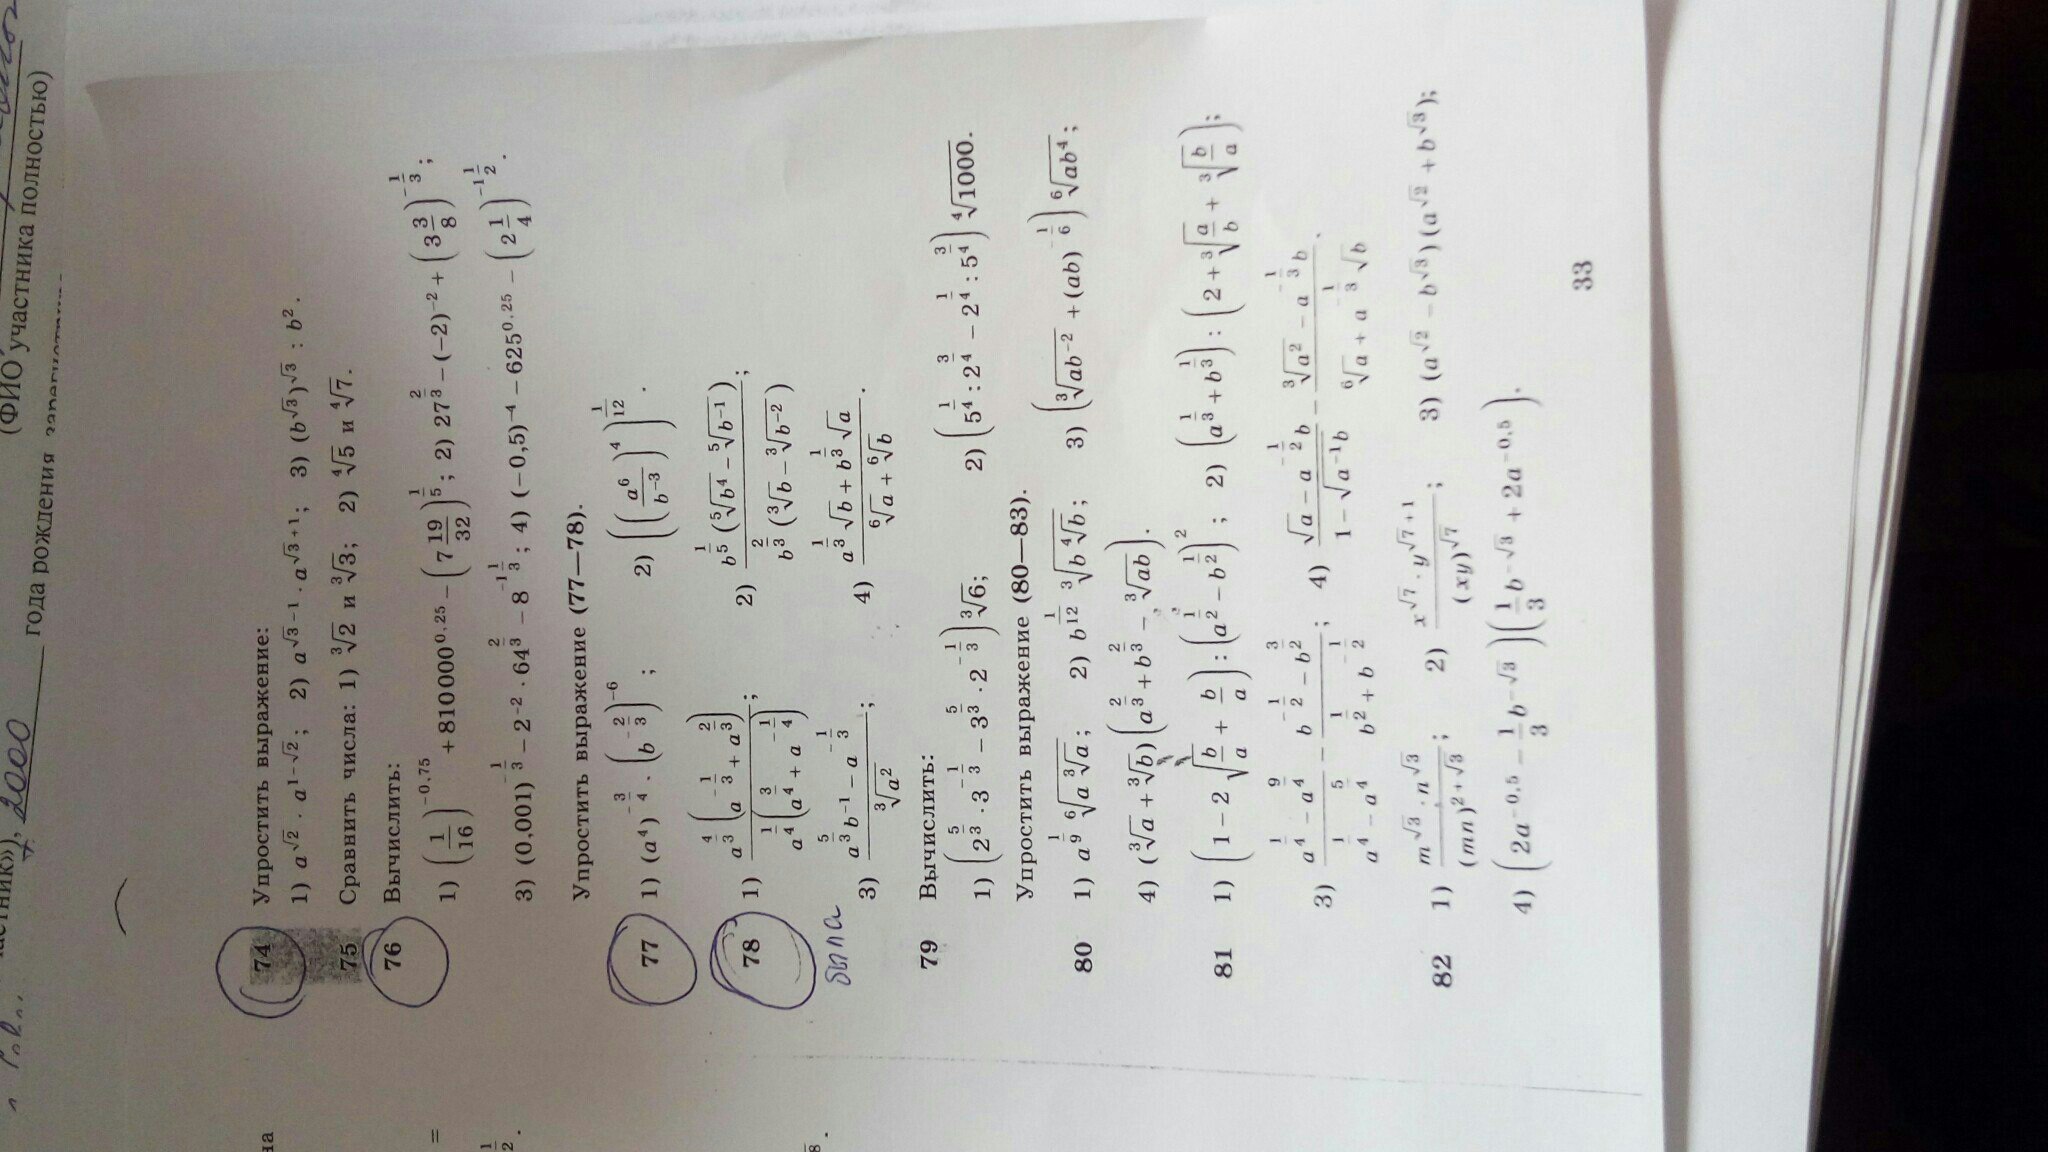 (ФИО участника полностью)
2000 года рождения
74 Упростить выражение:
1) a^{√2} · a^{1−√2}; 2) a^{√3−1} · a^{√3+1}; 3) (b^{√3})^{√3} : b^2.
75 Сравнить числа: 1) ∛2 и ∛3; 2) ∜5 и ∜7.
76 Вычислить:
1) (1/16)^{−0,75} + 810000^{0,25} − (7 19/32)^{1/5}; 2) 27^{2/3} − (−2)^{−2} + (3 3/8)^{−1/3};
3) (0,001)^{−1/3} − 2^{−2} · 64^{2/3} − 8^{−1 1/3}; 4) (−0,5)^{−4} − 625^{0,25} − (2 1/4)^{−1 1/2}.
Упростить выражение (77—78).
77 1) (a^4)^{−3/4} · (b^{−2/3})^{−6}; 2) ((a^6/b^{−3})^4)^{1/12}.
78 1) a^{4/3}(a^{−1/3} + a^{2/3}) / a^{1/4}(a^{3/4} + a^{−1/4}); 2) b^{1/5}(⁵√b^4 − ⁵√b^{−1}) / b^{2/3}(∛b − ∛b^{−2});
была
3) (a^{5/3}b^{−1} − a b^{−1/3}) / ∛a^2; 4) (a^{1/3}√b + b^{1/3}√a) / (⁶√a + ⁶√b).
79 Вычислить:
1) (2^{5/3} · 3^{−1/3} − 3^{5/3} · 2^{−1/3}) ∛6; 2) (5^{1/4} : 2^{3/4} − 2^{1/4} : 5^{3/4}) ∜1000.
Упростить выражение (80—83).
80 1) a^{1/9} ⁶√(a∛a); 2) b^{1/12} ∛(b∜b); 3) (∛ab^{−2} + (ab)^{−1/6}) ⁶√ab^4;
4) (∛a + ∛b)(a^{2/3} + b^{2/3} − ∛ab).
81 1) (1 − 2√(b/a) + b/a) : (a^{1/2} − b^{1/2})^2; 2) (a^{1/3} + b^{1/3}) : (2 + ∛(a/b) + ∛(b/a));
3) (a^{1/4} − a^{9/4})/(a^{1/4} − a^{5/4}) − (b^{−1/2} − b^{3/2})/(b^{1/2} + b^{−1/2}); 4) (√a − a^{−1/2}b)/(1 − √a^{−1}b) − (∛a^2 − a^{−1/3}b)/(⁶√a + a^{−1/3}√b).
82 1) m^{√3} · n^{√3} / (mn)^{2+√3}; 2) x^{√7} · y^{√7+1} / (xy)^{√7}; 3) (a^{√2} − b^{√3})(a^{√2} + b^{√3});
4) (2a^{−0,5} − 1/3 b^{−√3})(1/3 b^{−√3} + 2a^{−0,5}).
33